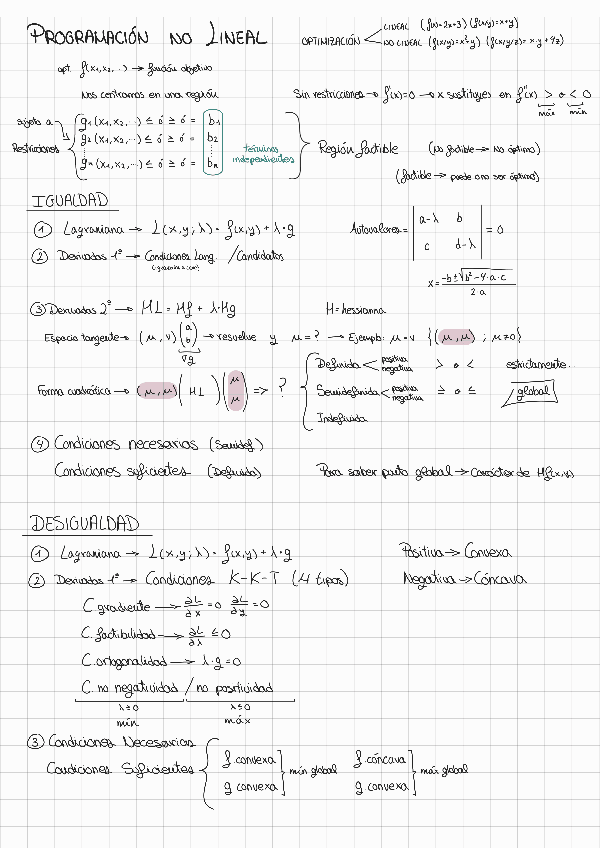 PROGRAMACIÓN NO LINEAL
OPTIMIZACIÓN
LINEAL (f(x)=2x+3) (f(x,y)=x+y)
NO LINEAL (f(x,y)=x²y) (f(x,y,z)=x·y+4z)
opt. f(x₁,x₂,...) → función objetivo
Nos centramos en una región
Sin restricciones → f'(x)=0 → x sustituyes en f''(x) > o < 0
mín
sujeto a
Restricciones
g₁(x₁,x₂,...) ≤ ó ≥ ó = b₁
g₂(x₁,x₂,...) ≤ ó ≥ ó = b₂
gₙ(x₁,x₂,...) ≤ ó ≥ ó = bₙ
términos
independientes
Región factible
(No factible → No óptimo)
(factible → puede o no ser óptimo)
IGUALDAD
① Lagraniana → L(x,y;λ) = f(x,y) + λ·g
Autovalores = | a-λ b |
| c d-λ | = 0
② Derivadas 1º → Condiciones Lang. / Candidatos
x = -b±√b²-4·a·c
2a
③ Derivadas 2º → HL = Hf + λ·Hg
H = hessianna
Espacio tangente → (μ,v) (a b) → resuelve y μ=? → Ejemplo: μ=v {(μ,μ) ; μ≠0}
∇g
Forma cuadrática → (μ,μ) (HL) (μ μ) => ?
Definida < positiva negativa > o < estrictamente.
Semidefinida < positiva negativa ≥ o ≤ global
Indefinida
④ Condiciones necesarias (Semidef)
Condiciones suficientes (Definida)
Para saber punto global → Carácter de Hf(x,y)
DESIGUALDAD
① Lagraniana → L(x,y;λ) = f(x,y) + λ·g
Positiva → Convexa
② Derivadas 1º → Condiciones K-K-T (4 tipos)
Negativa → Cóncava
C. gradiente → ∂L/∂x = 0 ∂L/∂y = 0
C. factibilidad → ∂L/∂λ ≤ 0
C. ortogonalidad → λ·g = 0
C. no negatividad / no positividad
λ≥0 λ≤0
mín máx
③ Condiciones Necesarias
Condiciones Suficientes
f convexa
g convexa
mín global
f cóncava
g convexa
máx global